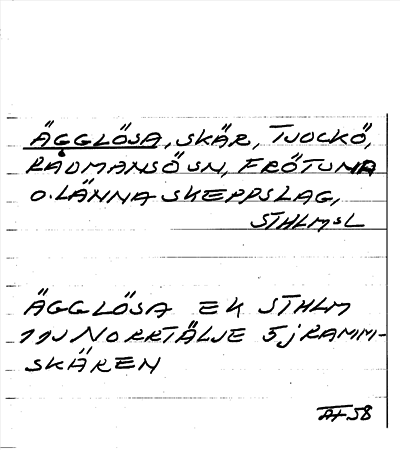 ÄGGLÖSA, SKÄR, TJOCKÖ,
RÅDMANSÖ SN, FRÖTUNA
O. LÄNNA SKEPPSLAG,
STHLMS L
ÄGGLÖSA EK STHLM
11J NORRTÄLJE 5j RAMM-
SKÄREN
AF 58